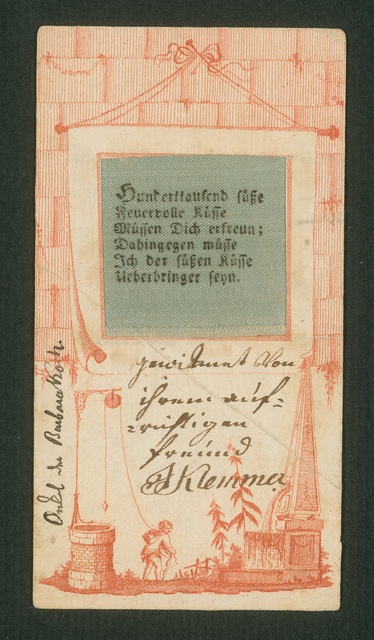 Hunderttausend süße
Feuervolle Küsse
Müssen Dich erfreun;
Dahingegen müsse
Ich der süßen Küsse
Ueberbringer seyn.
gewidmet von
ihrem auf-
richtigen
freund
Klemma
Onkel der Barbara